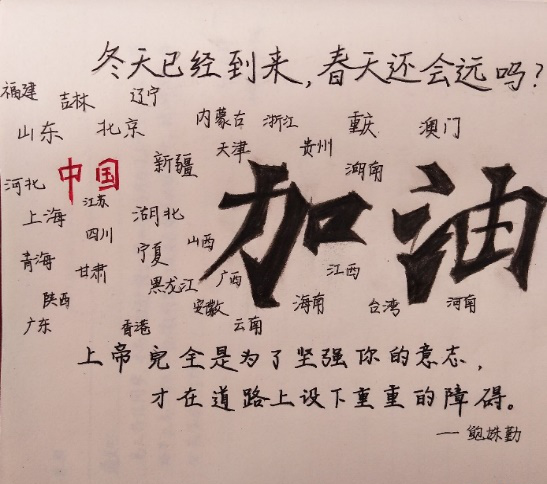 冬天已经到来，春天还会远吗？
福建 吉林 辽宁
山东 北京 内蒙古 浙江 重庆 澳门
天津 贵州
河北 中国 新疆 湖南
江苏
上海 湖北
四川 山西
青海 甘肃 宁夏 黑龙江 广西 江西
陕西 安徽 海南 台湾 河南
广东 香港 云南
加油
上帝完全是为了坚强你的意志，
才在道路上设下重重的障碍。
——鲍姝勤